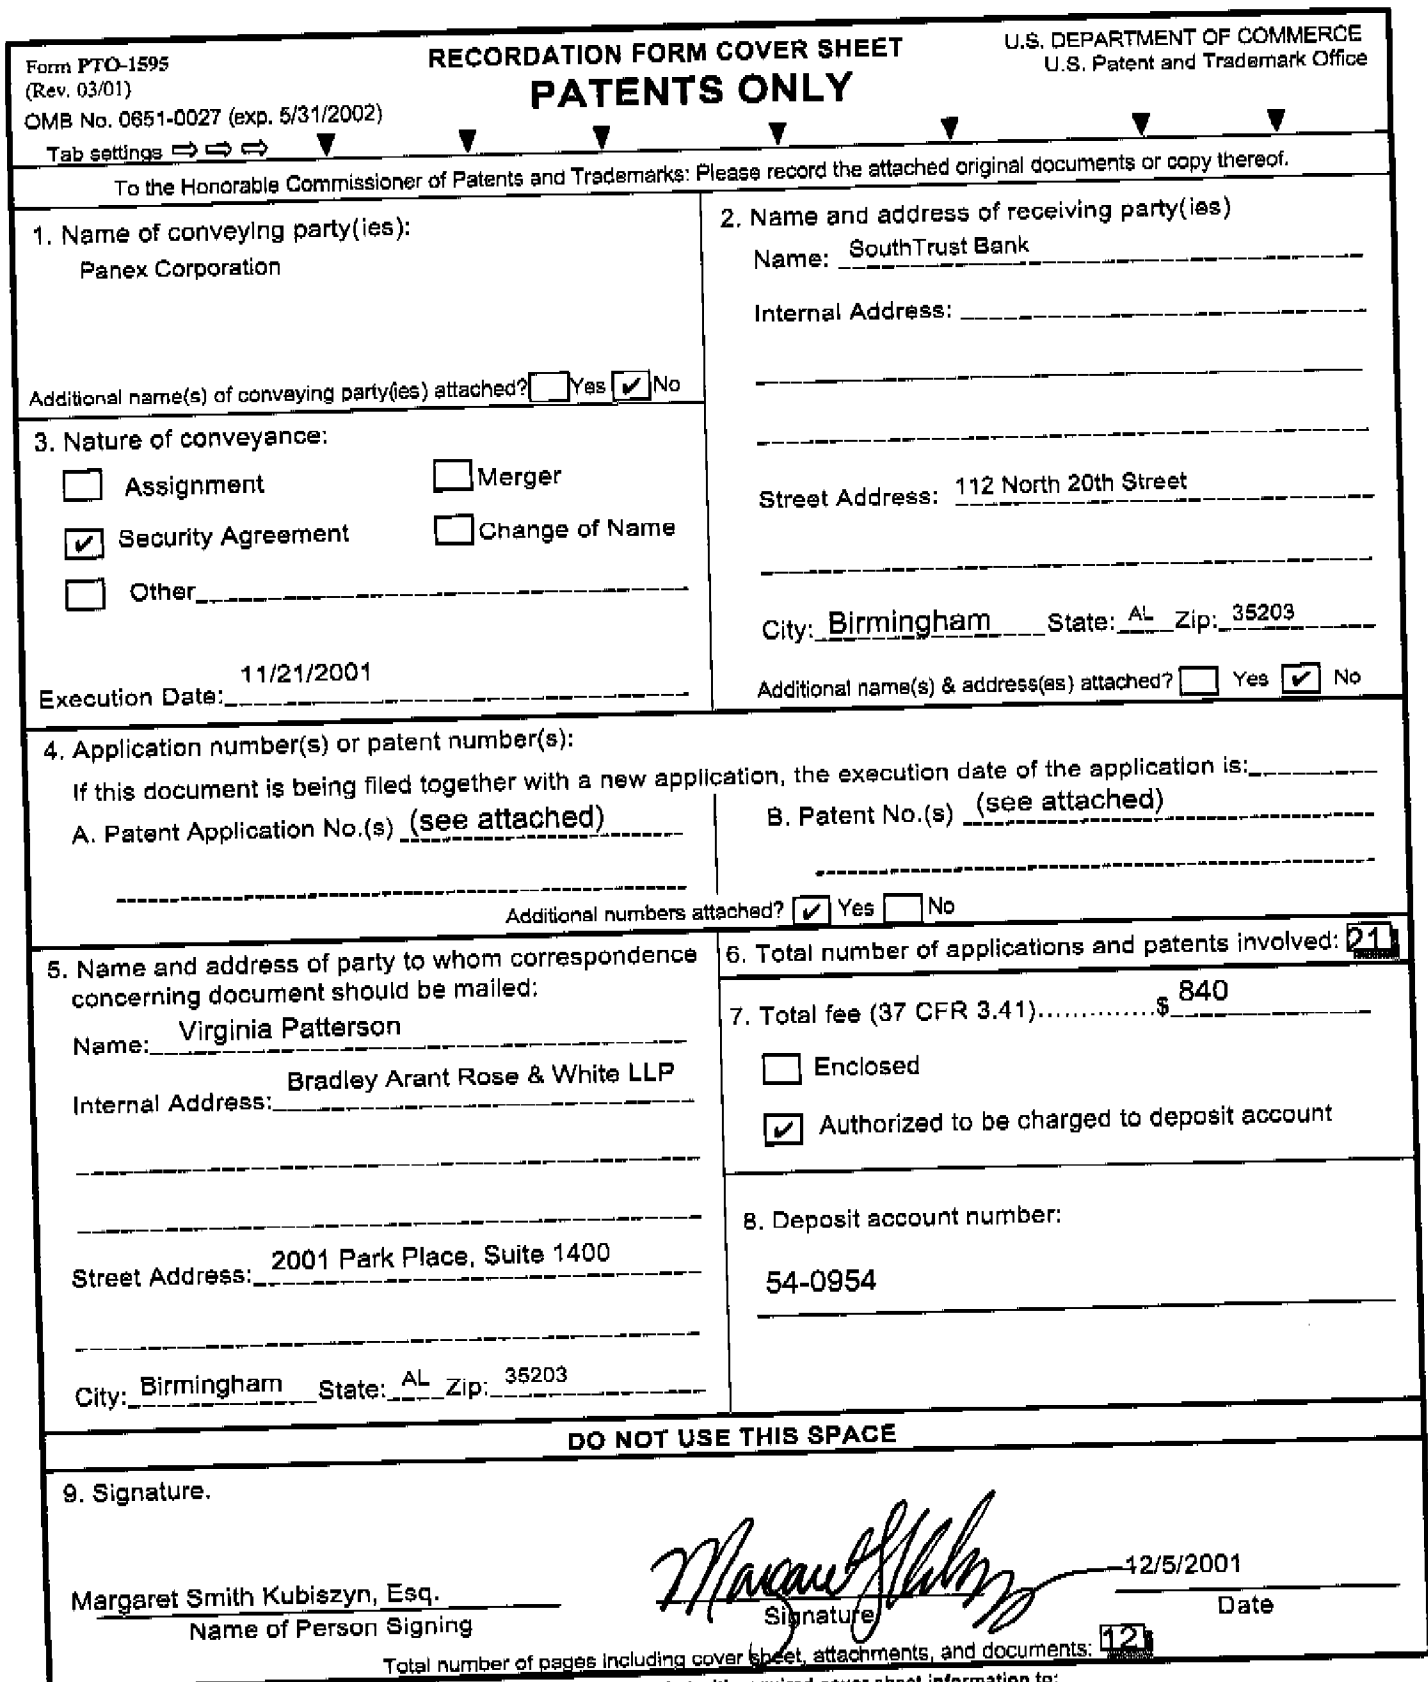 Form PTO-1595
(Rev. 03/01)
OMB No. 0651-0027 (exp. 5/31/2002)
Tab settings ⇨ ⇨ ⇨ ▼ ▼ ▼ ▼ ▼ ▼ ▼
RECORDATION FORM COVER SHEET
PATENTS ONLY
U.S. DEPARTMENT OF COMMERCE
U.S. Patent and Trademark Office
To the Honorable Commissioner of Patents and Trademarks: Please record the attached original documents or copy thereof.
1. Name of conveying party(ies):
Panex Corporation
Additional name(s) of conveying party(ies) attached? ☐ Yes ☑ No
2. Name and address of receiving party(ies)
Name: SouthTrust Bank
Internal Address:
Street Address: 112 North 20th Street
City: Birmingham State: AL Zip: 35203
Additional name(s) & address(es) attached? ☐ Yes ☑ No
3. Nature of conveyance:
☐ Assignment ☐ Merger
☑ Security Agreement ☐ Change of Name
☐ Other
Execution Date: 11/21/2001
4. Application number(s) or patent number(s):
If this document is being filed together with a new application, the execution date of the application is:
A. Patent Application No.(s) (see attached)
B. Patent No.(s) (see attached)
Additional numbers attached? ☑ Yes ☐ No
5. Name and address of party to whom correspondence
concerning document should be mailed:
Name: Virginia Patterson
Internal Address: Bradley Arant Rose & White LLP
Street Address: 2001 Park Place, Suite 1400
City: Birmingham State: AL Zip: 35203
6. Total number of applications and patents involved: 21
7. Total fee (37 CFR 3.41)..............$ 840
☐ Enclosed
☑ Authorized to be charged to deposit account
8. Deposit account number:
54-0954
DO NOT USE THIS SPACE
9. Signature.
Margaret Smith Kubiszyn, Esq.
Name of Person Signing
Margaret S Kubiszyn
Signature
12/5/2001
Date
Total number of pages including cover sheet, attachments, and documents: 12
required cover sheet information to: